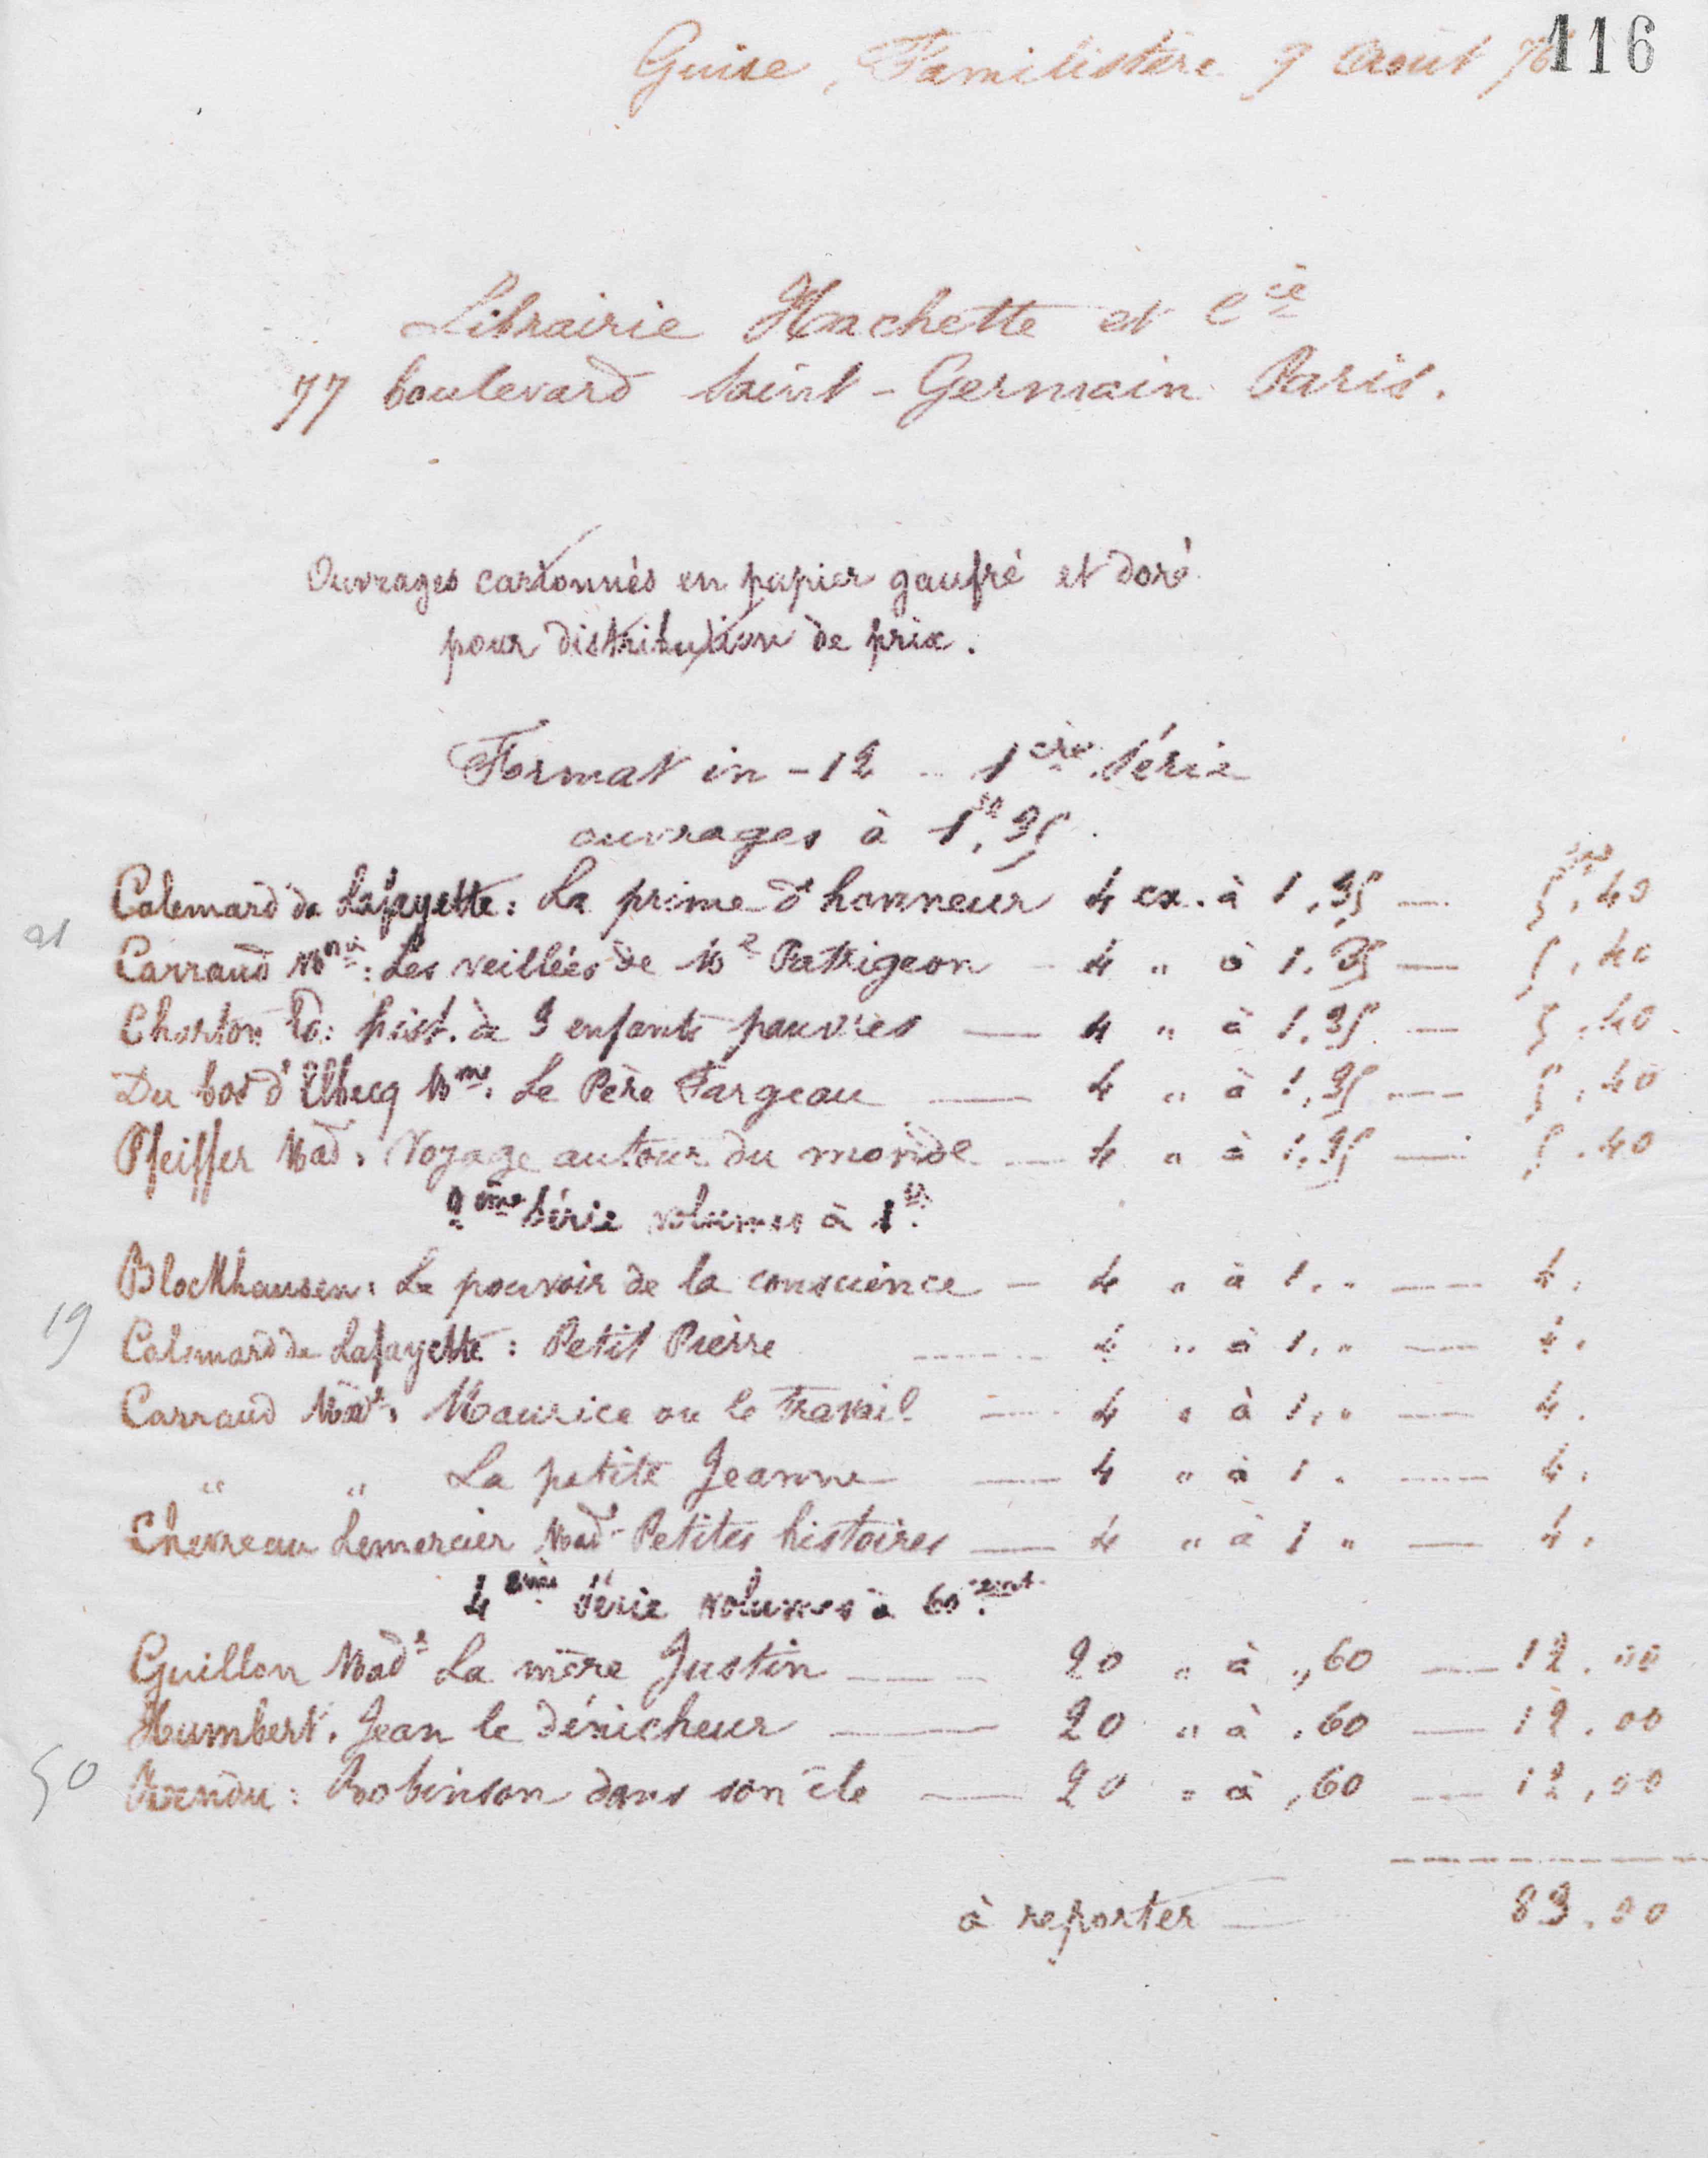 Guise, Familistère 9 Août 76
116
Librairie Hachette et Cie
77 boulevard Saint-Germain Paris.
Ouvrages cartonnés en papier gaufré et doré
pour distribution de prix.
Format in-12 - 1ère Série
ouvrages à 1fr,35.
Calemard de Lafayette: La prime d'honneur 4 ex. à 1,35 — 5fr,40
21
Carraud Mme: Les veillées de Me Patrigeon — 4 " à 1,35 — 5,40
Charton Ed: hist. de 3 enfants pauvres — 4 " à 1,35 — 5,40
Du bos d'Elbecq Mme: Le Père Fargeau — 4 " à 1,35 — 5,40
Pfeiffer Mad: Voyage autour du monde — 4 " à 1,35 — 5.40
2ème Série volumes à 1fr.
Blockhausen: Le pouvoir de la conscience — 4 " à 1,. — 4.
19
Calemard de Lafayette: Petit Pierre — 4 " à 1," — 4.
Carraud Made: Maurice ou le Travail — 4 " à 1," — 4.
" " La petite Jeanne — 4 " à 1. — 4.
Chevreau Lemercier Made Petites histoires — 4 " à 1 " — 4.
4ème Série volumes à 60 cent.
Guillon Made La mère Justin — 20 " à ",60 — 12.00
Humbert. Jean le dénicheur — 20 " à ,60 — 12.00
50
Rendu: Robinson dans son île — 20 " à ,60 — 12,00
à reporter — 83.00